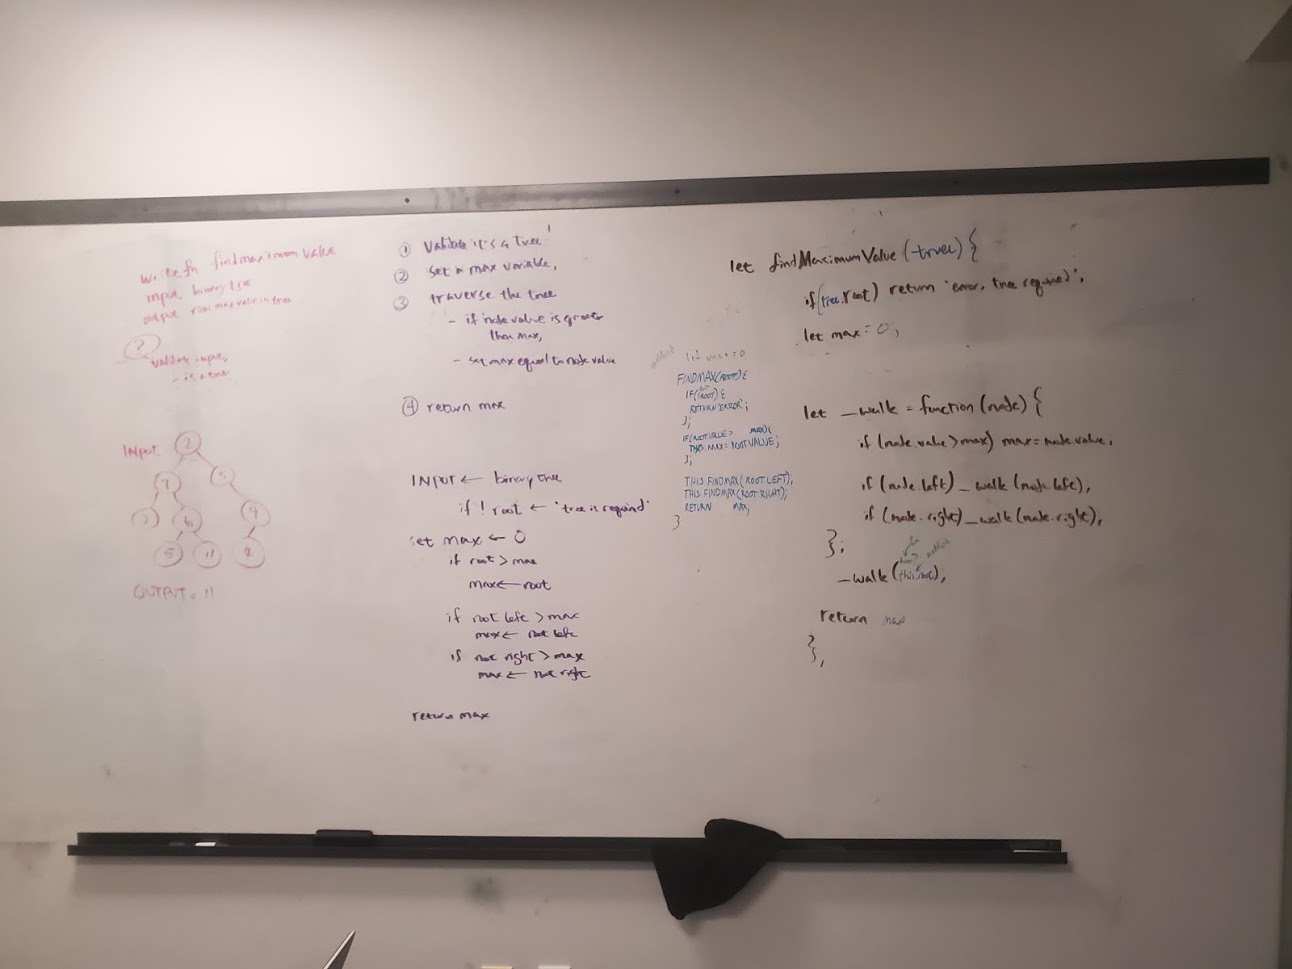 write fn findmaximum value
input binary tree
output max value in tree
?
validate input,
- is a tree
INPUT
2
7
5
2
6
9
5
11
4
OUTPUT = 11
① Validate it's a tree!
② set a max variable,
③ traverse the tree
- if node value is greater
than max,
- set max equal to node value
④ return max
INPUT ← binary tree
if ! root ← 'tree is required'
set max ← 0
if root > max
max ← root
if root left > max
max ← root left
if root right > max
max ← root right
return max
method
let max = 0
FINDMAX(ROOT){
IF(!ROOT) {
RETURN 'ERROR';
};
IF(ROOT.VALUE > MAX){
THIS.MAX = ROOT.VALUE;
};
THIS.FINDMAX(ROOT.LEFT);
THIS.FINDMAX(ROOT.RIGHT);
RETURN MAX;
}
let findMaximumValue (tree) {
if(tree.root) return 'error, tree required';
let max = 0;
let _walk = function (node) {
if (node.value > max) max = node.value,
if (node.left) _walk (node.left),
if (node.right) _walk (node.right),
};
method
_walk (this.root),
return max
},